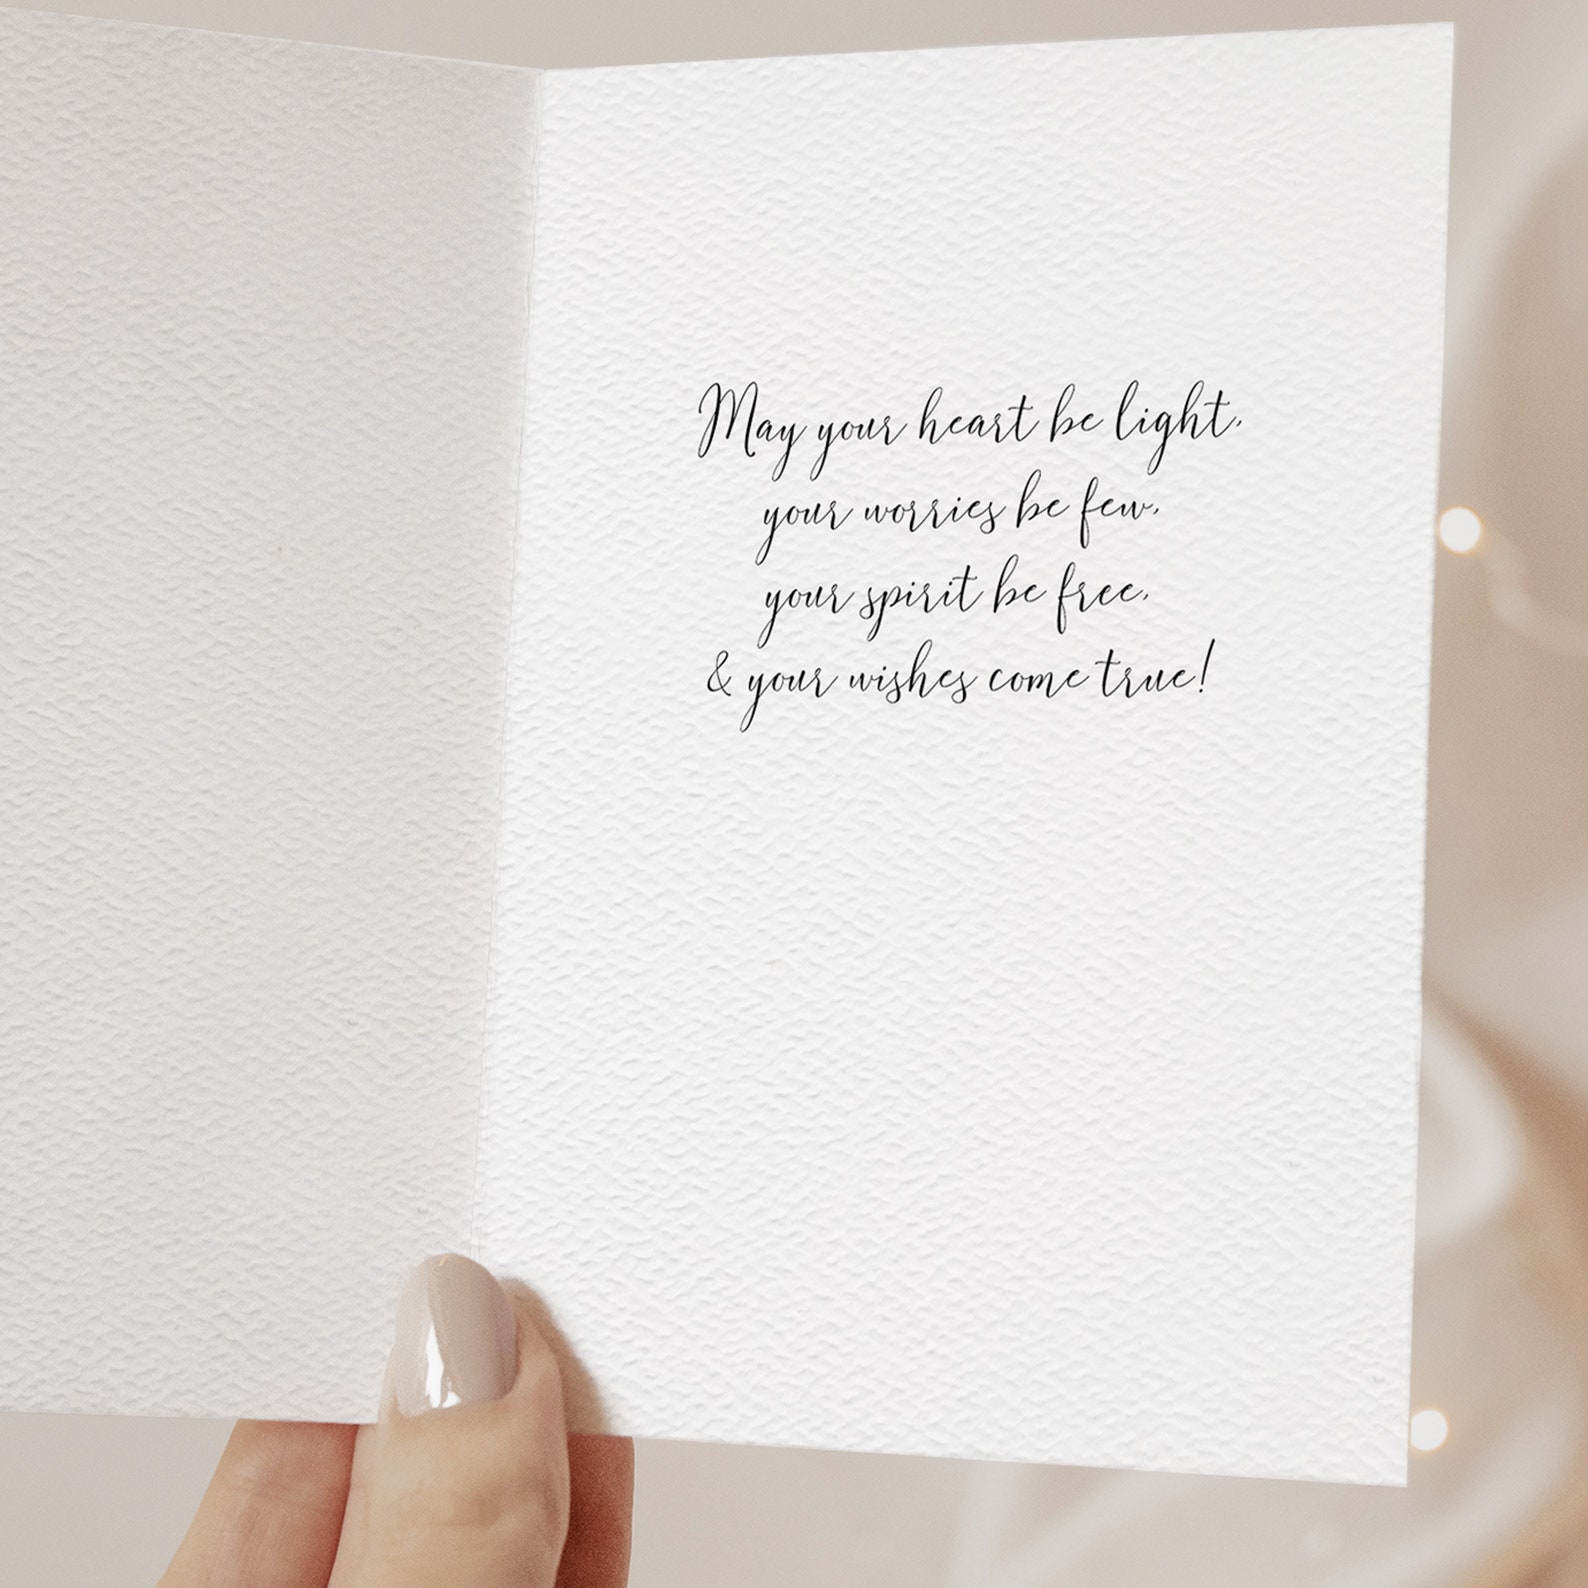 May your heart be light,
your worries be few,
your spirit be free,
& your wishes come true!